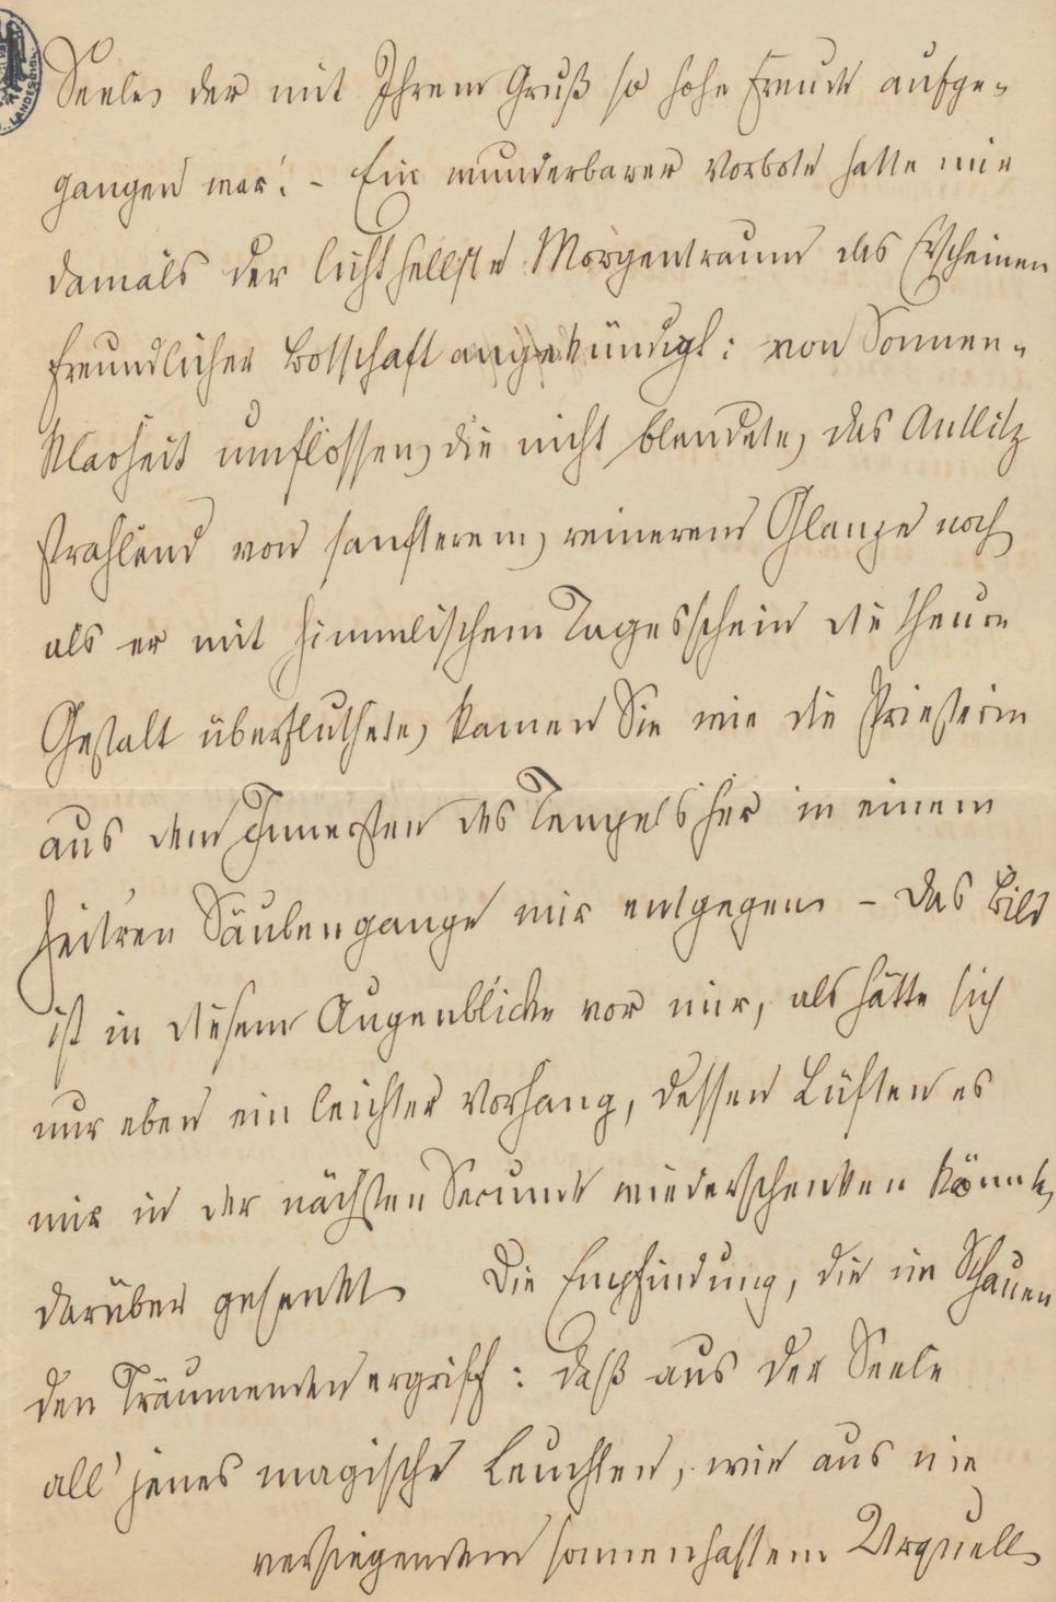 Seele, der mit Ihrem Gruß so hohe Freude aufge-
gangen war! – Ein wunderbarer Vorbote hatte mir
damals der lichthellste Morgentraum das Erscheinen
freundlicher Botschaft angekündigt: von Sonnen-
klarheit umflossen, die nicht blendete, das Antlitz
strahlend von sanfterem, reinerem Glanze noch
als er mit himmlischem Tagesschein die theure
Gestalt überfluthete, kamen Sie wie die Priesterin
aus dem Innersten des Tempels her in einem
heitren Säulengange mir entgegen – das Bild
ist in diesem Augenblicke vor mir, als hätte sich
nur eben ein leichter Vorhang, dessen Lüften es
mir in der nächsten Secunde wiederschenken könnte,
darüber gesenkt. Die Empfindung, die im Schauen
den Träumenden ergriff: daß aus der Seele
all' jenes magische Leuchten, wie aus nie
versiegendem sonnenhaftem Urquell